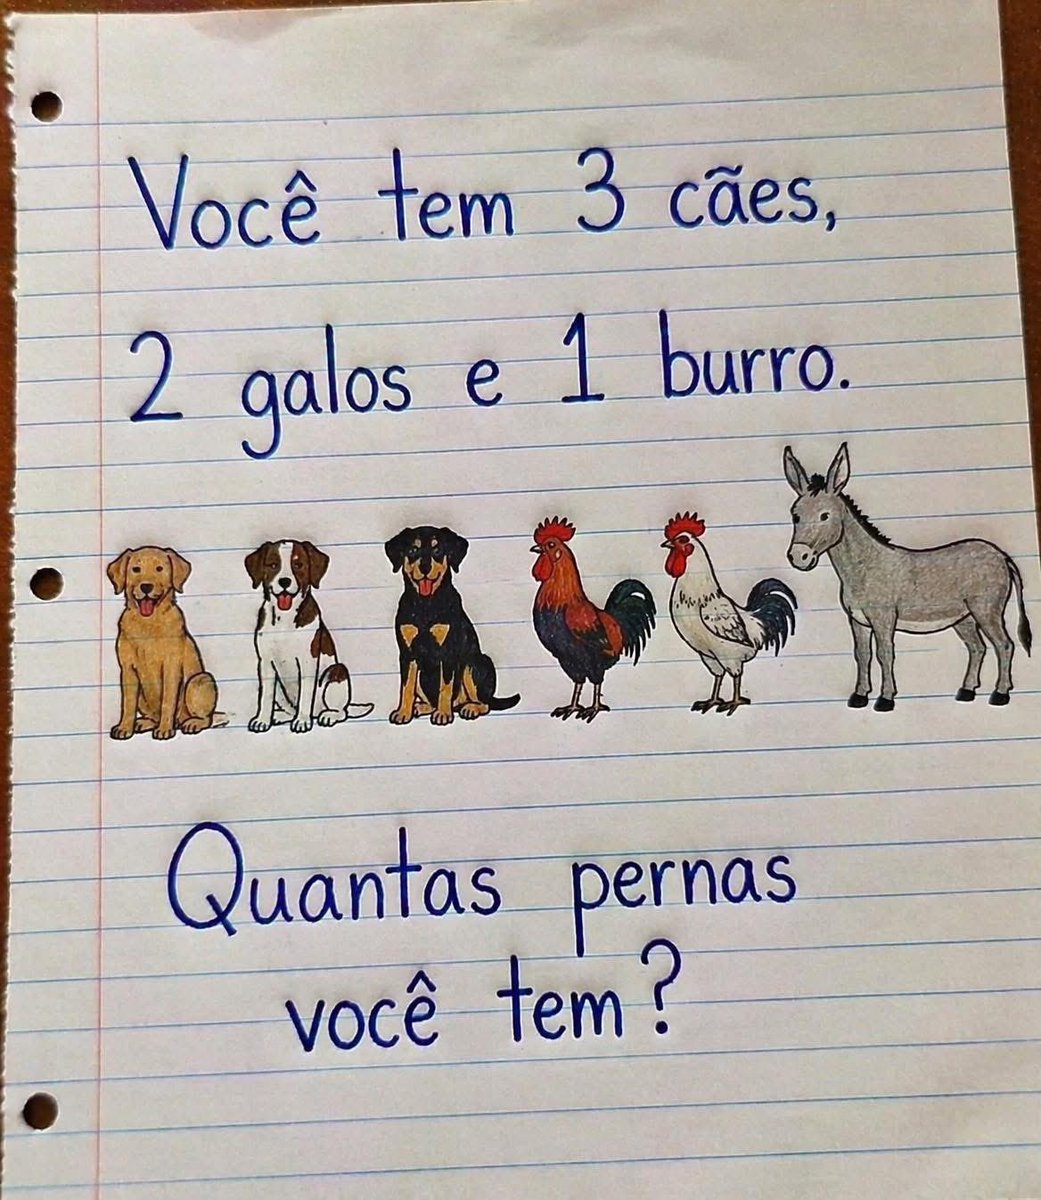 Você tem 3 cães,
2 galos e 1 burro.
Quantas pernas
você tem?